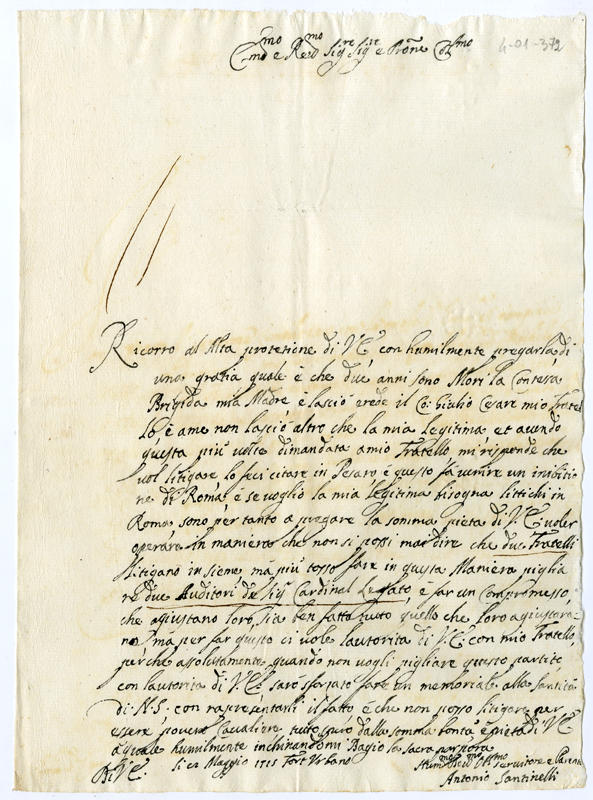 Emo e Remo Sigre Sigre e Prône Colmo
4-01-372
Ricorro al Alta protetione di V.E. con humilmente pregarla di
una gratia quale è che due anni sono Morì la Contessa
Brigida mia Madre e lasciò erede il Co: Giulio Cesare mio fratel
lo, è ame non lasciò altro che la mia legitima et avendo
questa più volte dimandata amio Fratello mi risponde che
vol litigare lo feci citare in Pesaro, è questo fà venire un inibitio
ne di Roma, e se voglio la mia legitima bisogna littichi in
Roma sono per tanto a pregare la somma pieta di V.E. voler
operare in maniera che non si possi mai dire che due Fratelli
litigano insieme, mà più tosto fare in questa Maniera piglia
re due Auditori de Sig. Cardinal Legato, è far un Compromesso
che agiustano loro, sia ben fatto tutto quello che loro agiustara-
no, mà per far questo ci vole lautorita di V.E. con mio Fratello,
perche assolutamente quando non vogli pigliare questo partito
con lautorita di V.E. sarò sforzato fare un memoriale alla Santità
di N.S. con rapresentarli il fatto è che non posso litigare per
essere povero Cavaliere, tutto spero dalla somma bontà è pietà di V.E.
a quale humilmente inchinandomi Bagio la sacra porpora
Di V.E. li 22 Maggio 1715 Fort Urbano
Humo Devmo Obmo servitore e Parente
Antonio Santinelli